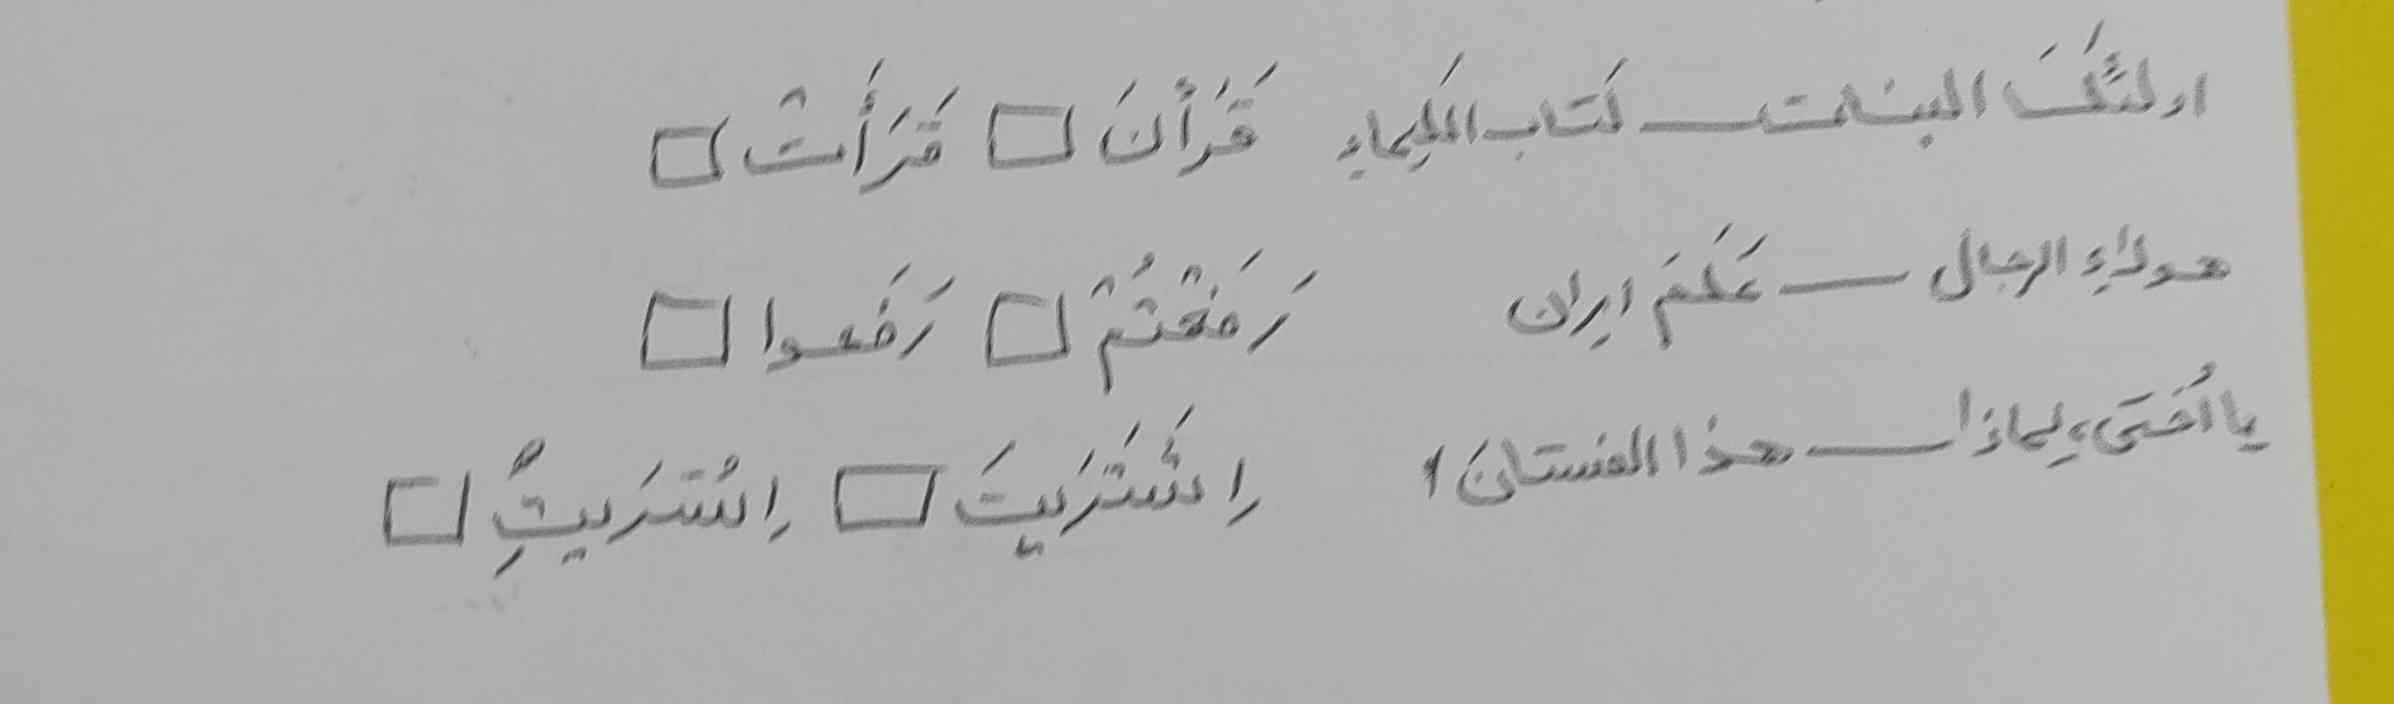 اولئکَ البنات ــــ کتاب الکیمیاءِ قَرَأْنَ □ قَرَأَتْ □
هولاءِ الرجال ــــ عَلَمَ ایران رَفَعْتُمْ □ رَفَعوا □
یا اُختی، لِماذا ــــ هذا الفستانَ؟ اِشْتَرَیتَ □ اِشْتَرَیتِ □